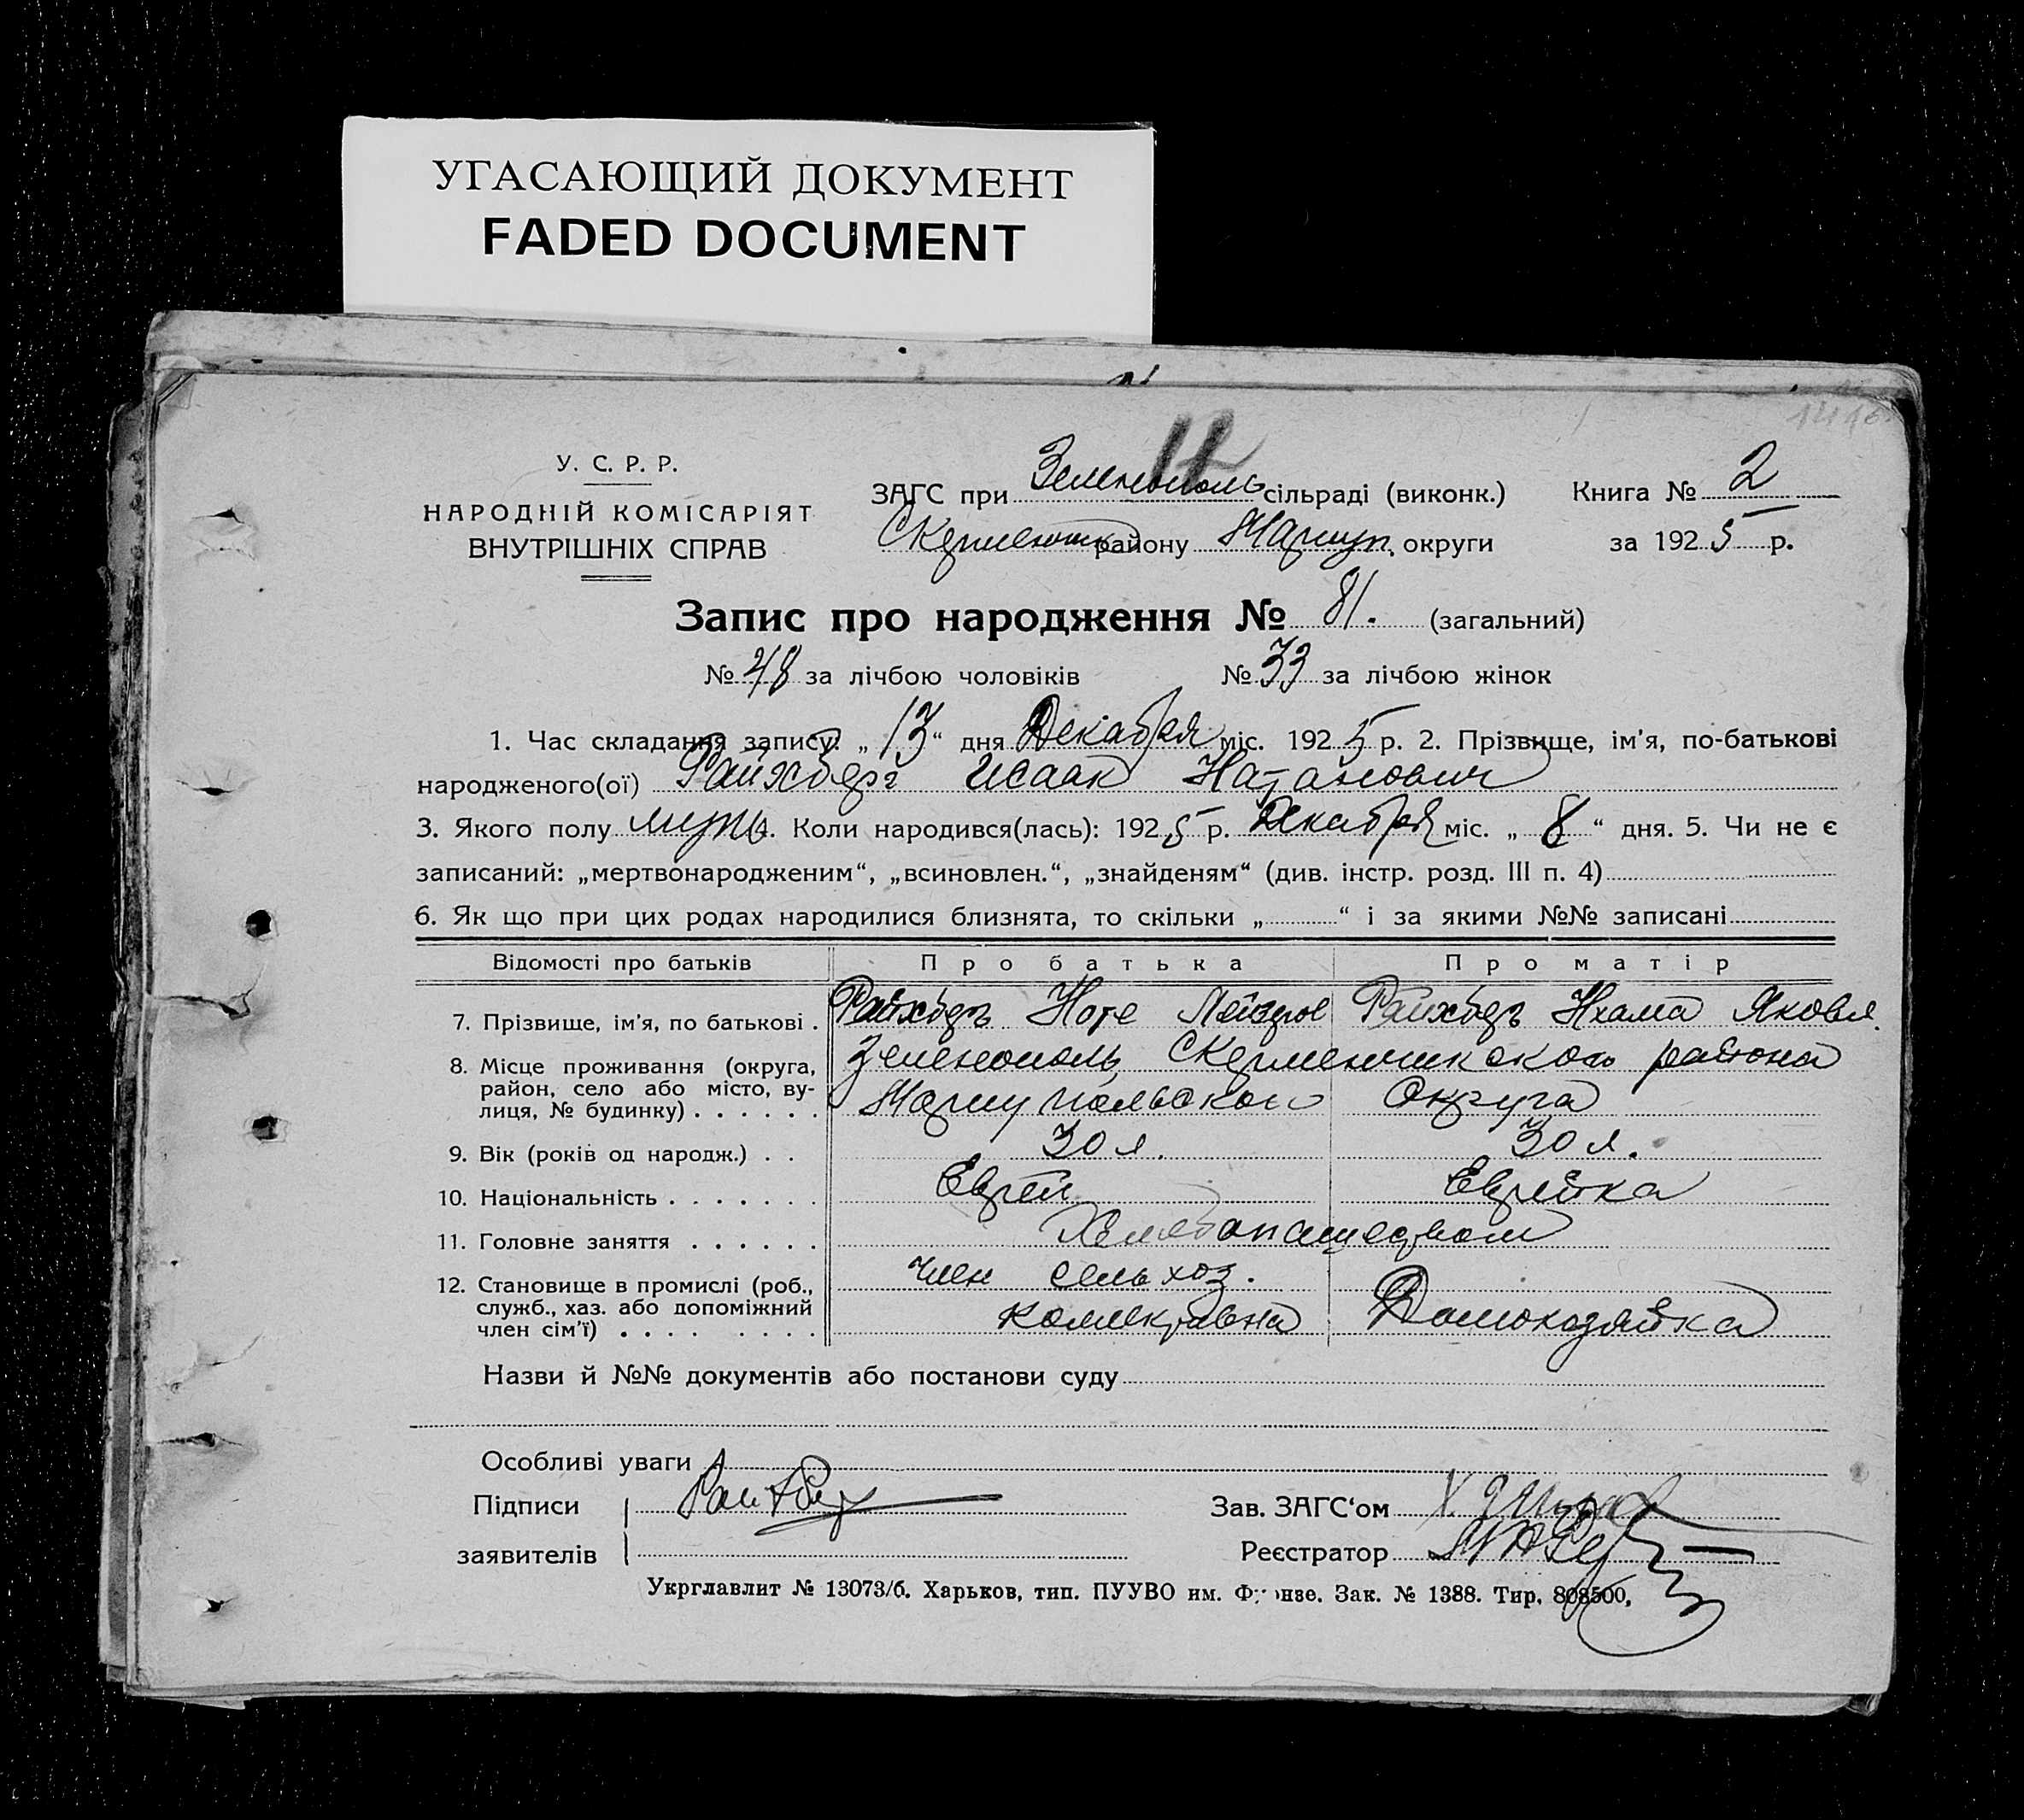 УГАСАЮЩИЙ ДОКУМЕНТ
FADED DOCUMENT
У. С. Р. Р.
НАРОДНІЙ КОМІСАРІЯТ
ВНУТРІШНІХ СПРАВ
ЗАГС при Зеленополь сільраді (виконк.) Книга № 2
району Мариуп. округи за 1925 р.
Запис про народження № 81. (загальний)
№ 48 за лічбою чоловіків № 33 за лічбою жінок
1. Час складання запису: „13“ дня Декабря міс. 1925 р. 2. Прізвище, ім'я, по-батькові
народженого(ої) Райхберг Исаак Натанович
3. Якого полу муж. 4. Коли народився(лась): 1925 р. Декабря міс. „8“ дня. 5. Чи не є
записаний: „мертвонародженим“, „всиновлен.“, „знайденям“ (див. інстр. розд. III п. 4)
6. Як що при цих родах народилися близнята, то скільки „ “ і за якими №№ записані
Відомості про батьків Про батька Про матір
7. Прізвище, ім'я, по батькові . Райхберг Ноте Лейзеров Райхберг Нхама Яковл.
8. Місце проживання (округа, район, село або місто, вулиця, № будинку) . . . . . . Зеленополь, Скерменчикского района
Мариупольского Округа
9. Вік (років од народж.) . . 30 л. 30 л.
10. Національність . . . . . . . Еврей Еврейка
11. Головне заняття . . . . . . Хлебопашеством
12. Становище в промислі (роб., служб., хаз. або допоміжний член сім'ї) . . . . . . . . Член сельхоз.
коллектива Домохозяйка
Назви й №№ документів або постанови суду
Особливі уваги
Підписи Райхберг Зав. ЗАГС‘ом
заявителів Реєстратор
Укрглавлит № 13073/б. Харьков, тип. ПУУВО им. Фрунзе. Зак. № 1388. Тир. 808500,